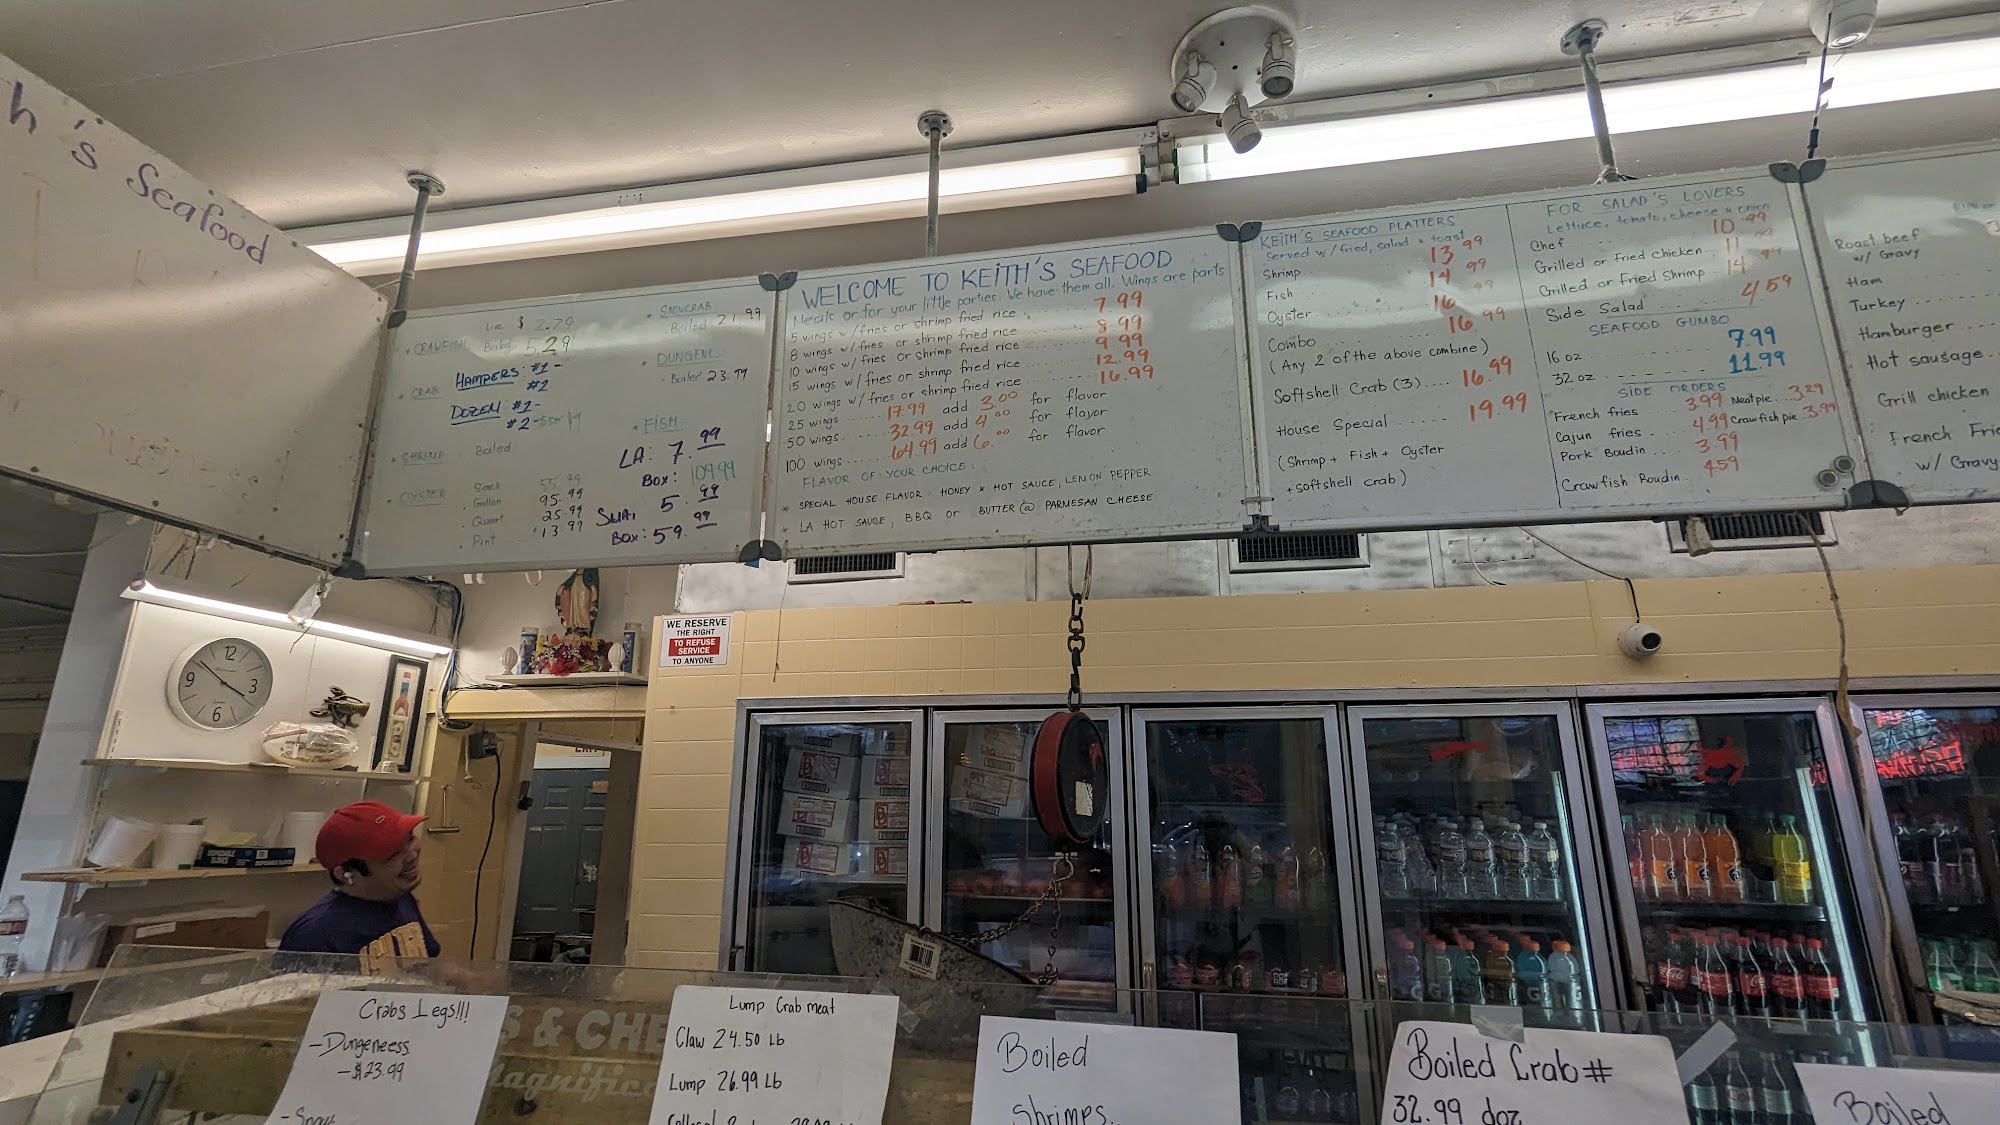 h's Seafood
Live $ 2.79
• CRAWFISH Boiled 5.29
• CRAB HAMPERS: #1-
#2
DOZEN #1-
#2-
• SHRIMP Boiled
• OYSTER Sack 55.99
• Gallon 95.99
• Quart 25.99
• Pint 13.99
• SNOWCRAB
• Boiled 21.99
• DUNGENESS
• Boiled 23.99
• FISH:
LA: 7.99
BOX: 109.99
SWAI 5.99
BOX: 59.99
WELCOME TO KEITH'S SEAFOOD
Meals or for your little parties. We have them all. Wings are parts
5 wings w/fries or shrimp fried rice 7.99
8 wings w/fries or shrimp fried rice 8.99
10 wings w/fries or shrimp fried rice 9.99
15 wings w/fries or shrimp fried rice 12.99
20 wings w/fries or shrimp fried rice 16.99
25 wings ...... 17.99 add 3.00 for flavor
50 wings ...... 32.99 add 4.00 for flavor
100 wings ...... 64.99 add 6.00 for flavor
FLAVOR OF YOUR CHOICE:
* SPECIAL HOUSE FLAVOR: HONEY & HOT SAUCE, LEMON PEPPER
* LA HOT SAUCE, BBQ or BUTTER @ PARMESAN CHEESE
KEITH'S SEAFOOD PLATTERS
Served w/fried, salad & toast
Shrimp 13.99
Fish 14.99
Oyster 16.99
Combo 16.99
(Any 2 of the above combine)
Softshell Crab (3).... 16.99
House Special ...... 19.99
(Shrimp + Fish + Oyster
+ softshell crab)
FOR SALAD'S LOVERS
Lettuce, tomato, cheese & onion
Chef 10.99
Grilled or fried chicken 11.99
Grilled or Fried Shrimp 14.99
Side Salad 4.59
SEAFOOD GUMBO
16 oz 7.99
32 oz 11.99
SIDE ORDERS
French fries 3.99 Meat pie... 3.29
Cajun fries 4.99 Crawfish pie 3.99
Pork Boudin 3.99
Crawfish Boudin 4.59
Roast beef
w/ Gravy
Ham
Turkey
Hamburger
Hot sausage
Grill chicken
French Frie
w/ Gravy
WE RESERVE
THE RIGHT
TO REFUSE
SERVICE
TO ANYONE
12
3
6
9
DISPOSABLE GLOVES
S & CHE
Magnific
Crabs Legs!!!
- Dungeneess
- $23.99
- Snow
Lump Crab meat
Claw 24.50 Lb
Lump 26.99 Lb
Boiled
Shrimps
Boiled Crab #
32.99 doz
Boiled